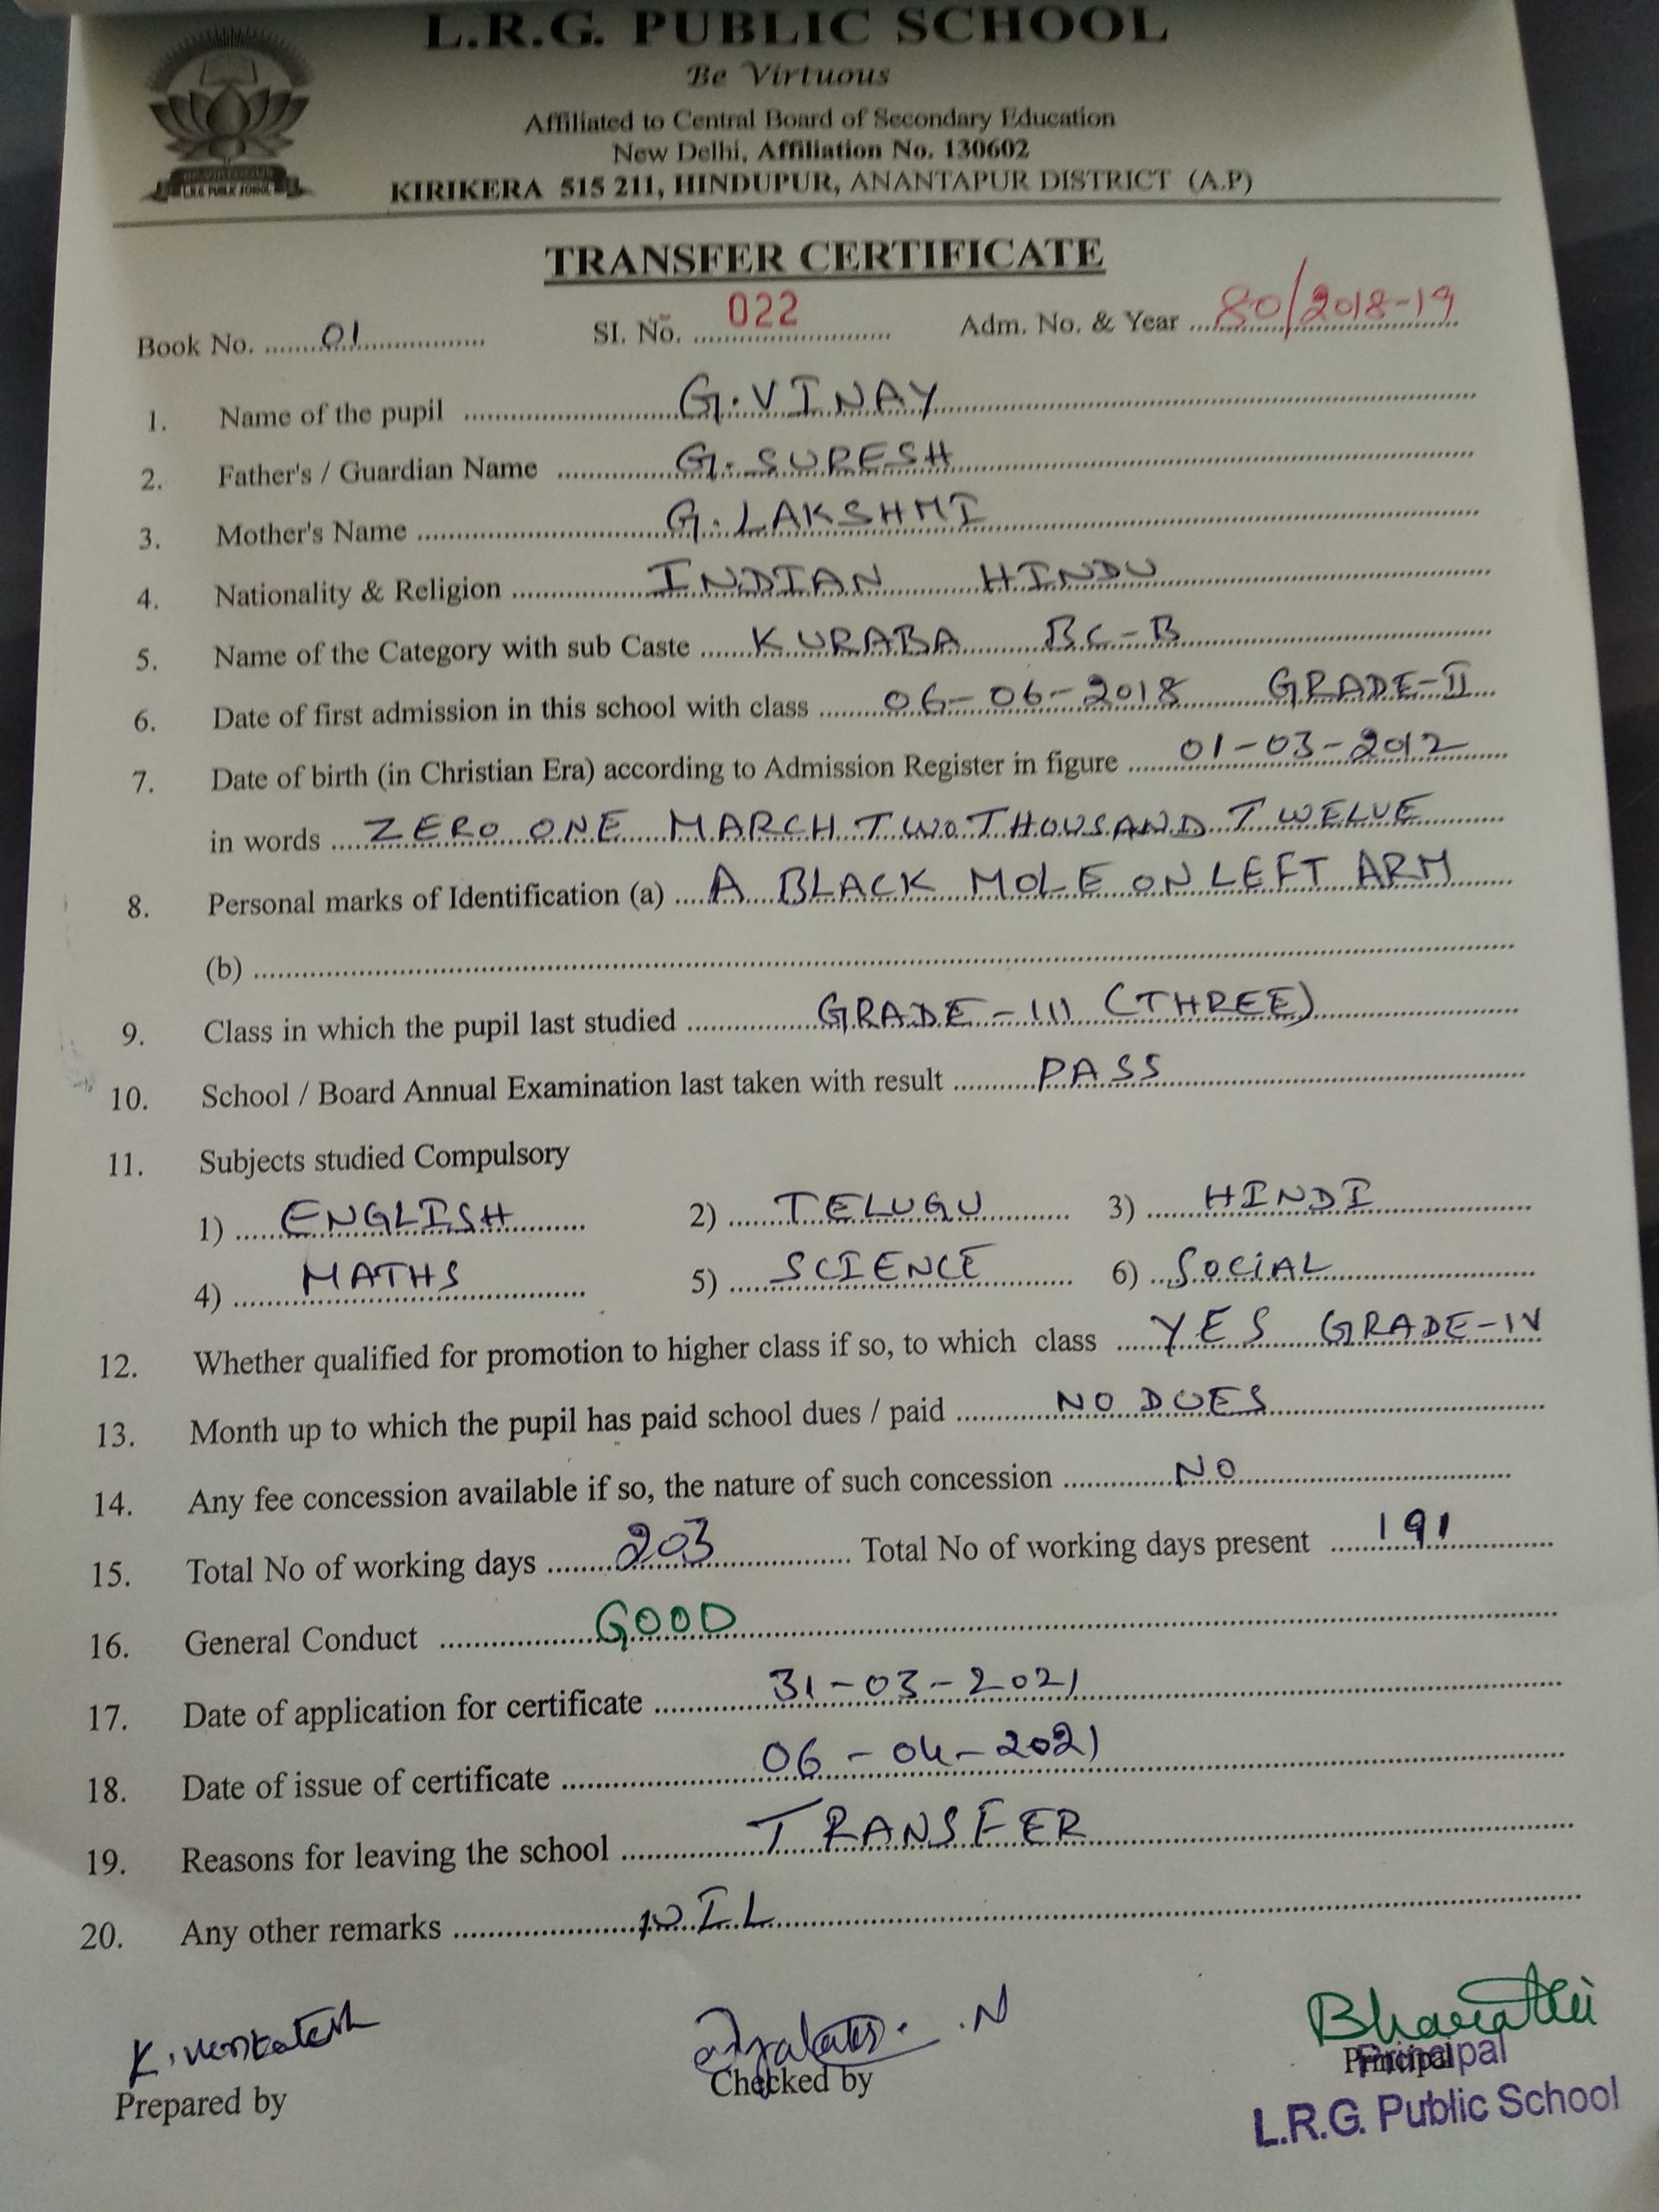 L.R.G. PUBLIC SCHOOL
Be Virtuous
Affiliated to Central Board of Secondary Education
New Delhi, Affiliation No. 130602
KIRIKERA 515 211, HINDUPUR, ANANTAPUR DISTRICT (A.P)
L.R.G PUBLIC SCHOOL
TRANSFER CERTIFICATE
Book No. 01 Sl. No. 022 Adm. No. & Year 80/2018-19
1. Name of the pupil G.VINAY
2. Father's / Guardian Name G. SURESH
3. Mother's Name G. LAKSHMI
4. Nationality & Religion INDIAN HINDU
5. Name of the Category with sub Caste KURABA BC-B
6. Date of first admission in this school with class 06-06-2018 GRADE-II
7. Date of birth (in Christian Era) according to Admission Register in figure 01-03-2012
in words ZERO ONE MARCH TWO THOUSAND TWELVE
8. Personal marks of Identification (a) A BLACK MOLE ON LEFT ARM
(b)
9. Class in which the pupil last studied GRADE-III (THREE)
10. School / Board Annual Examination last taken with result PASS
11. Subjects studied Compulsory
1) ENGLISH 2) TELUGU 3) HINDI
4) MATHS 5) SCIENCE 6) SOCIAL
12. Whether qualified for promotion to higher class if so, to which class YES GRADE-IV
13. Month up to which the pupil has paid school dues / paid NO DUES
14. Any fee concession available if so, the nature of such concession NO
15. Total No of working days 203 Total No of working days present 191
16. General Conduct GOOD
17. Date of application for certificate 31-03-2021
18. Date of issue of certificate 06-04-2021
19. Reasons for leaving the school TRANSFER
20. Any other remarks NIL
K. Venkatesh N Bharathi
Prepared by Checked by Principal
Principal
L.R.G. Public School